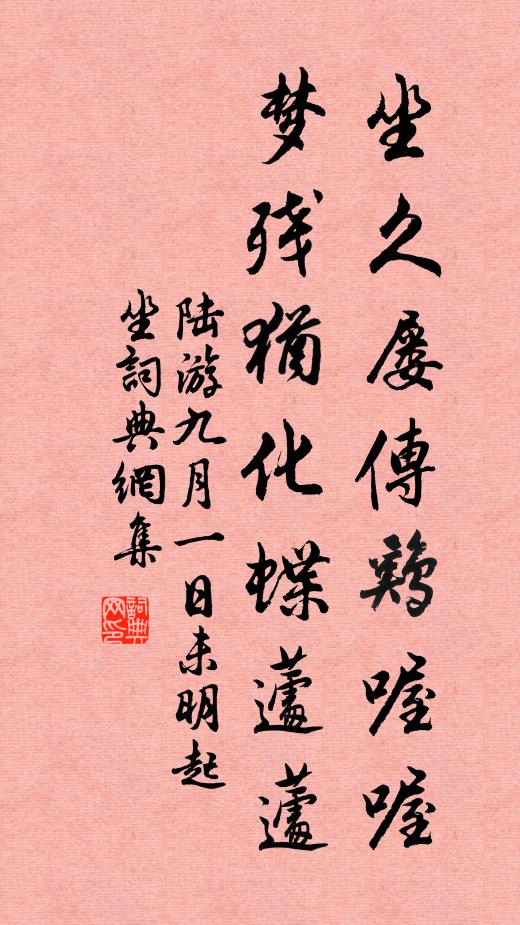 坐久屡傳鷄喔喔
梦残猶化蝶蘧蘧
陆游九月一日未明起
坐詞典網集
詞典
网印